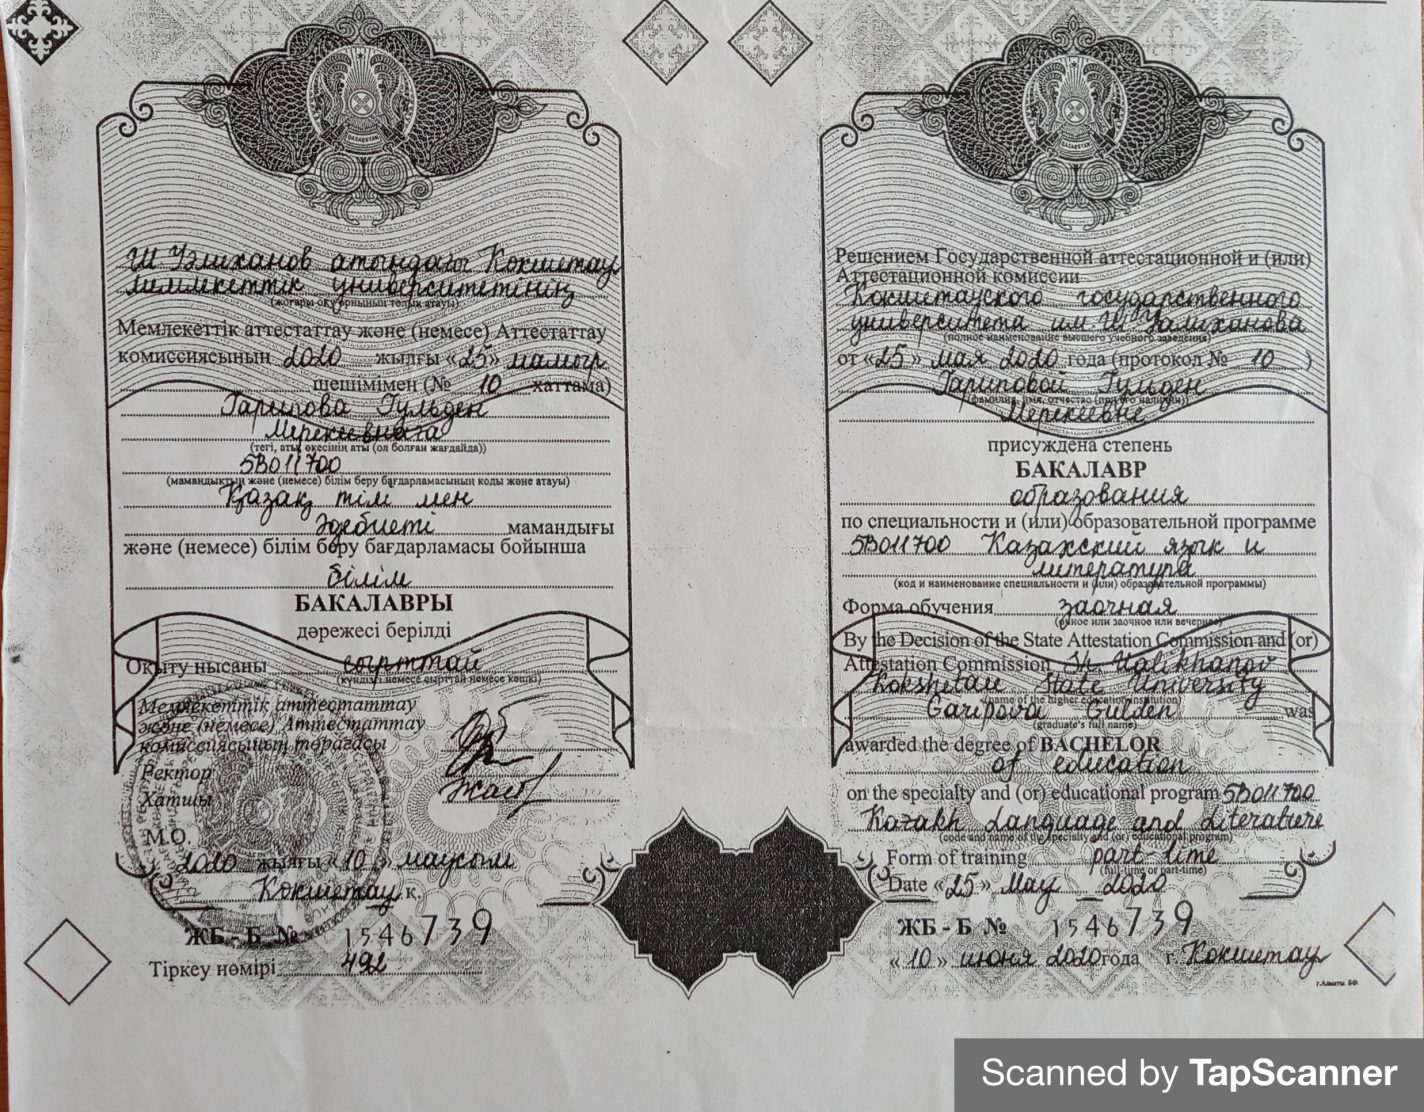 QAZAQSTAN
Ш Уәлиханов атындағы Көкшетау
мемлекеттік университетінің
(жоғары оқу орнының толық атауы)
Мемлекеттік аттестаттау және (немесе) Аттестаттау
комиссиясының 2020 жылғы «25» мамыр
шешімімен (№ 10 хаттама)
Гарипова Гульден
Мерекеевнаға
(тегі, аты, әкесінің аты (ол болған жағдайда))
5В011700
(мамандықтың және (немесе) білім беру бағдарламасының коды және атауы)
Қазақ тілі мен
әдебиеті мамандығы
және (немесе) білім беру бағдарламасы бойынша
білім
БАКАЛАВРЫ
дәрежесі берілді
Оқыту нысаны сырттай
(күндізгі немесе сырттай немесе кешкі)
Мемлекеттік аттестаттау
және (немесе) Аттестаттау
комиссиясының төрағасы
Ректор
Хатшы
М.О.
2020 жылғы «10» маусым
Көкшетау қ.
ЖБ - Б № 1546739
Тіркеу нөмірі 492
QAZAQSTAN
Решением Государственной аттестационной и (или)
Аттестационной комиссии
Кокшетауского государственного
университета им Ш Уалиханова
(полное наименование высшего учебного заведения)
от «25» мая 2020 года (протокол № 10 )
Гариповой Гульден
(фамилия, имя, отчество (при его наличии))
Мерекеевне
присуждена степень
БАКАЛАВР
образования
по специальности и (или) образовательной программе
5В011700 Казахский язык и
литература
(код и наименование специальности и (или) образовательной программы)
Форма обучения заочная
(очное или заочное или вечернее)
By the Decision of the State Attestation Commission and (or)
Attestation Commission Sh. Ualikhanov
Kokshetau State University
(name of the higher education institution)
Garipova Gulden was
(graduate's full name)
awarded the degree of BACHELOR
of education
on the specialty and (or) educational program 5B011700
Kazakh Language and Literature
(code and name of the specialty and (or) educational program)
Form of training part-time
(full-time or part-time)
Date «25» May 2020
ЖБ - Б № 1546739
«10» июня 2020 года г. Кокшетау
г.Алматы. БФ.
Scanned by TapScanner